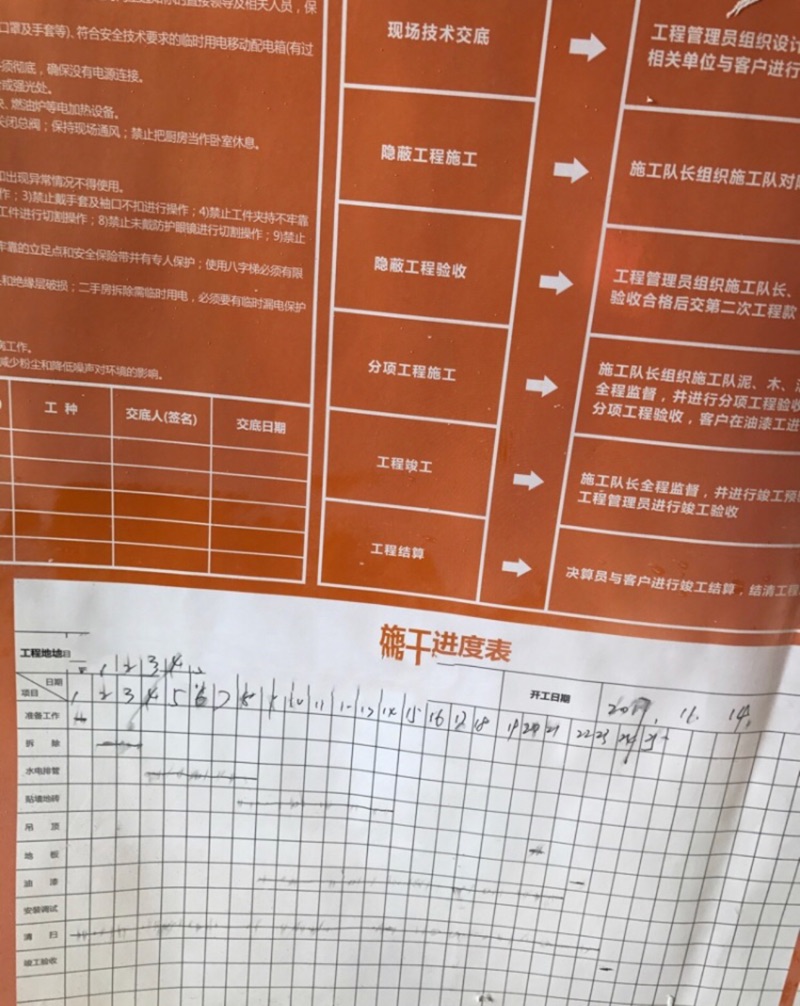 口罩及手套等)、符合安全技术要求的临时用电移动配电箱(有过
须彻底，确保没有电源连接。
或强光处。
燃油炉等电加热设备。
关闭总阀；保持现场通风；禁止把厨房当作卧室休息。
出现异常情况不得使用。
作；3)禁止戴手套及袖口不扣进行操作；4)禁止工件夹持不牢靠
工件进行切割操作；8)禁止未戴防护眼镜进行切割操作；9)禁止
牢靠的立足点和安全保险带并有专人保护；使用八字梯必须有限
和绝缘层破损；二手房拆除需临时用电，必须要有临时漏电保护
工作。
减少粉尘和降低噪声对环境的影响。
工 种
交底人(签名)
交底日期
现场技术交底
工程管理员组织设计
相关单位与客户进行
隐蔽工程施工
施工队长组织施工队对
隐蔽工程验收
工程管理员组织施工队长、
验收合格后交第二次工程款
分项工程施工
施工队长组织施工队泥、木、
全程监督，并进行分项工程验收
分项工程验收，客户在油漆工进
工程竣工
施工队长全程监督，并进行竣工预
工程管理员进行竣工验收
工程结算
决算员与客户进行竣工结算，结清工程
施工进度表
工程地址
1 2 3 4
开工日期
11. 14.
日期
项目
1 2 3 4 5 6 7 8 9 10 11 12 13 14 15 16 17 18 19 20 21 22 23 24 25
准备工作
拆 除
水电排管
贴墙地砖
吊 顶
地 板
油 漆
安装调试
清 扫
竣工验收